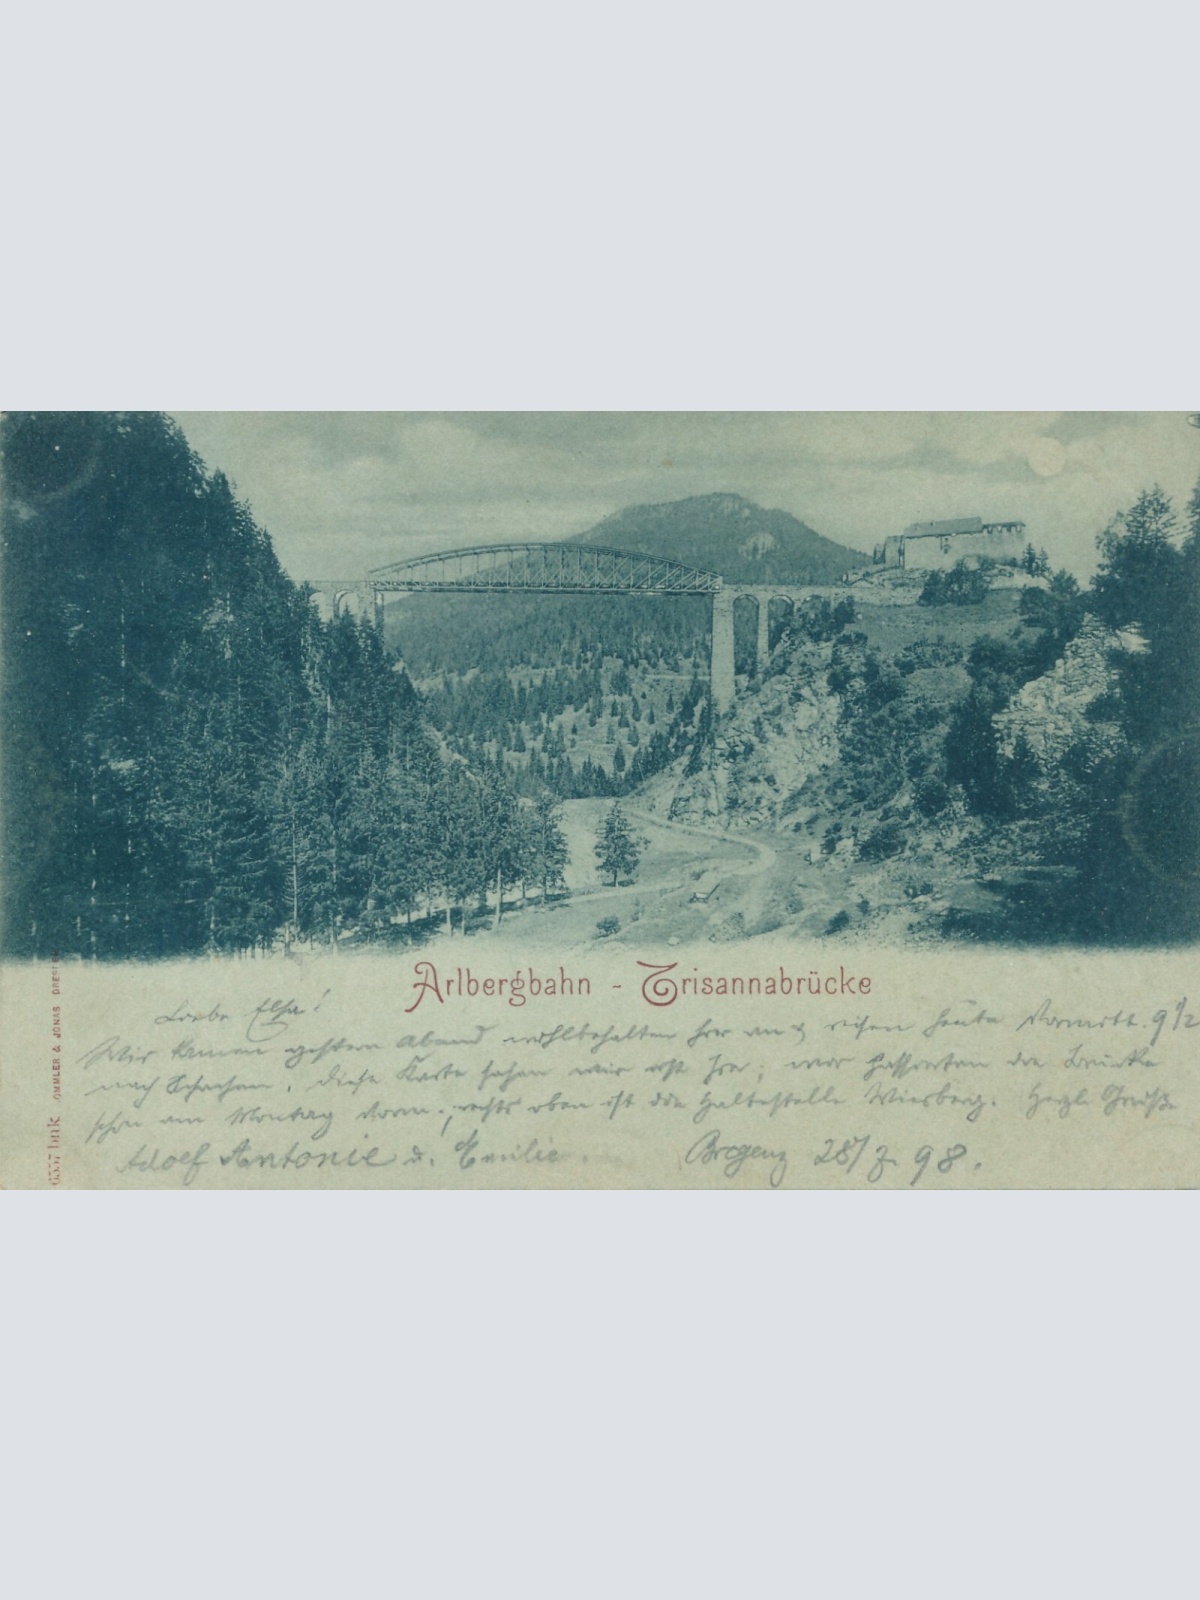 Arlbergbahn - Trisannabrücke
Liebe Elsa!
Wir kamen gestern Abend wohlbehalten hier an & reisen heute Vormitt. 9 1/2
nach Schachen. diese Karte sahen wir erst hier; wir passierten die Brücke
schon am Montag Vorm.; rechts oben ist die Haltestelle Wiesberg. Herzl. Grüße
Adolf Antonie u. Emilie Bregenz 28/7 98.
OMMLER & JONAS DRESDEN